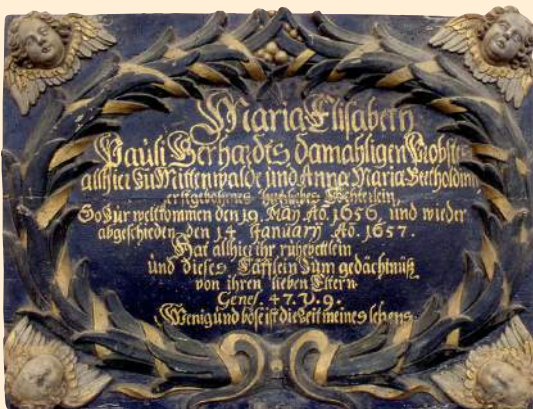 Maria Elisabeth
Pauli Gerhardts damahligen Probstes
allhier zu Mittenwalde und Anna Maria Bertholdinn
erstgebohrnes hertzliebes Töchterlein,
So zur welt kommen den 19. May Ao. 1656, und wieder
abgescheiden den 14 January Ao. 1657.
Hat allhier ihr ruhebettlein
und dieses Täfflein zum gedächtnüß
von ihren lieben Eltern.
Genes. 47. V. 9.
Wenig und böse ist die Zeit meines lebens